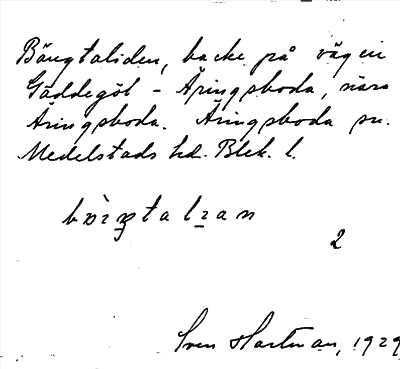 Bängtaliden, backe på vägen
Gäddegöl - Äringsboda, nära
Äringsboda. Äringsboda sn.
Medelstads hd. Blek. l.
2
Sven Hartman, 1929